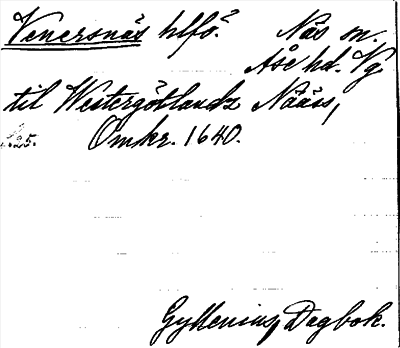 Venersnäs hlfö. Näs sn.
Åse hd. Vg.
til Westergötlandz Nääss,
S. 25. Omkr. 1640.
Gyllenius, Dagbok.